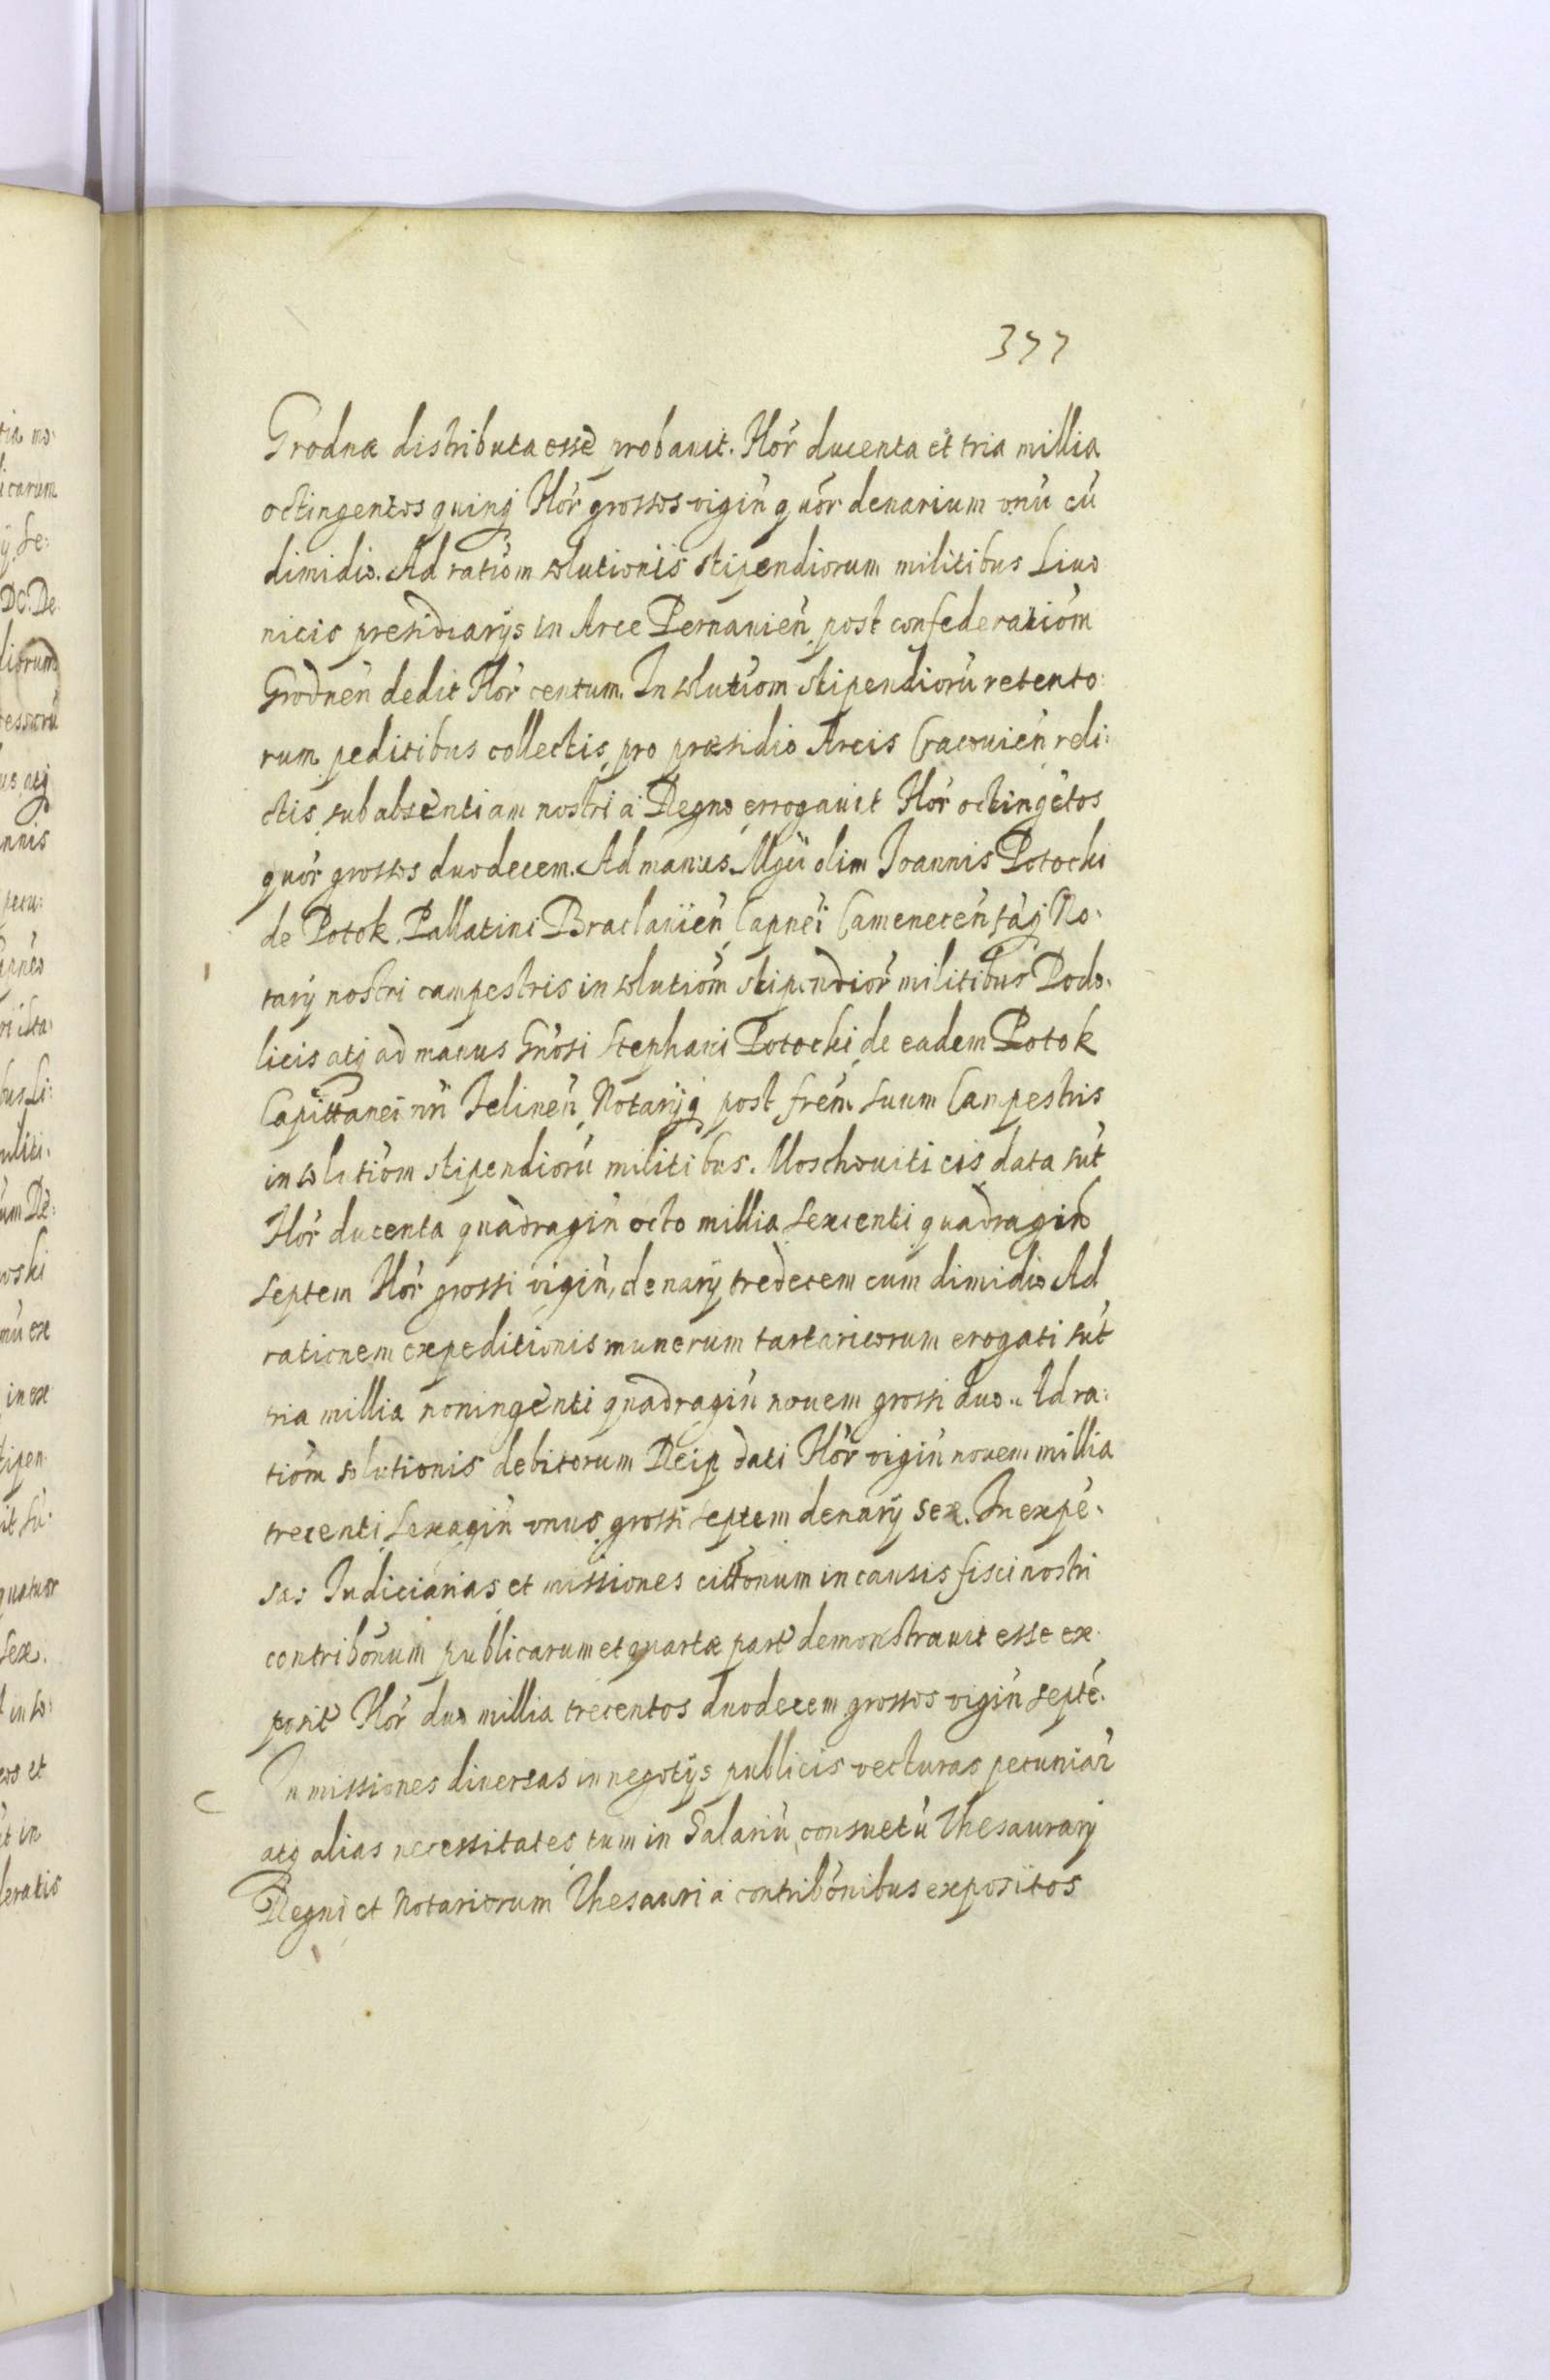 377
Grodnæ distributa esse probauit. Flór ducenta et tria millia
octingentos quinq Flór grossos vigiń quór denarium vnú cú
dimidio. Ad ratióm solutionis stipendiorum militibus Liuo
nicis presidiarÿs in Arce Pernauień post confederatióm
Grodneń dedit Flór centum. In solutióm stipendiorú retento:
rum peditibus collectis pro præsidio Arcis Cracouień reli:
ctis sub absentiam nostri à Regno errogauit Flór octingétos
quór grossos duodecem. Ad manus Mgci olim Joannis Potocki
de Potok Pallatini Braclauień Capnéi Cameneceń fáq No:
tarÿ nostri campestris in solutióm stipendiór militibus Podo:
licis atq ad manus Gnósi Stephani Potocki de eadem Potok
Capittanei nri Felineń Notarÿq post frém suum Campestris
in solutióm stipendiorú militibus Moschouiticis data sút
Flór ducenta quadragiń octo millia sexcenti quadragiń
septem Flór grossi vigiń, denarÿ tredecem cum dimidio Ad
rationem expeditionis munerum tartaricorum erogati sút
tria millia noningenti quadragiń nouem grossi duo. Ad ra:
tióm solutionis debitorum Reip dati Flór vigiń nouem millia
trecenti sexagiń vnus grossi septem denarÿ sex. In expé:
sas Iudiciarias et missiones cittónum in causis fisci nostri
contribónum publicarum et quartæ part demonstrauit esse ex
posit Flór duo millia trecentos duodecem grossos vigiń septé.
In missiones diuersas in negotÿs publicis vecturas pecuniar
atq alias necessitates tum in Salariú consuetú Thesaurarÿ
Regni et Notariorum Thesauri à contribónibus expositos